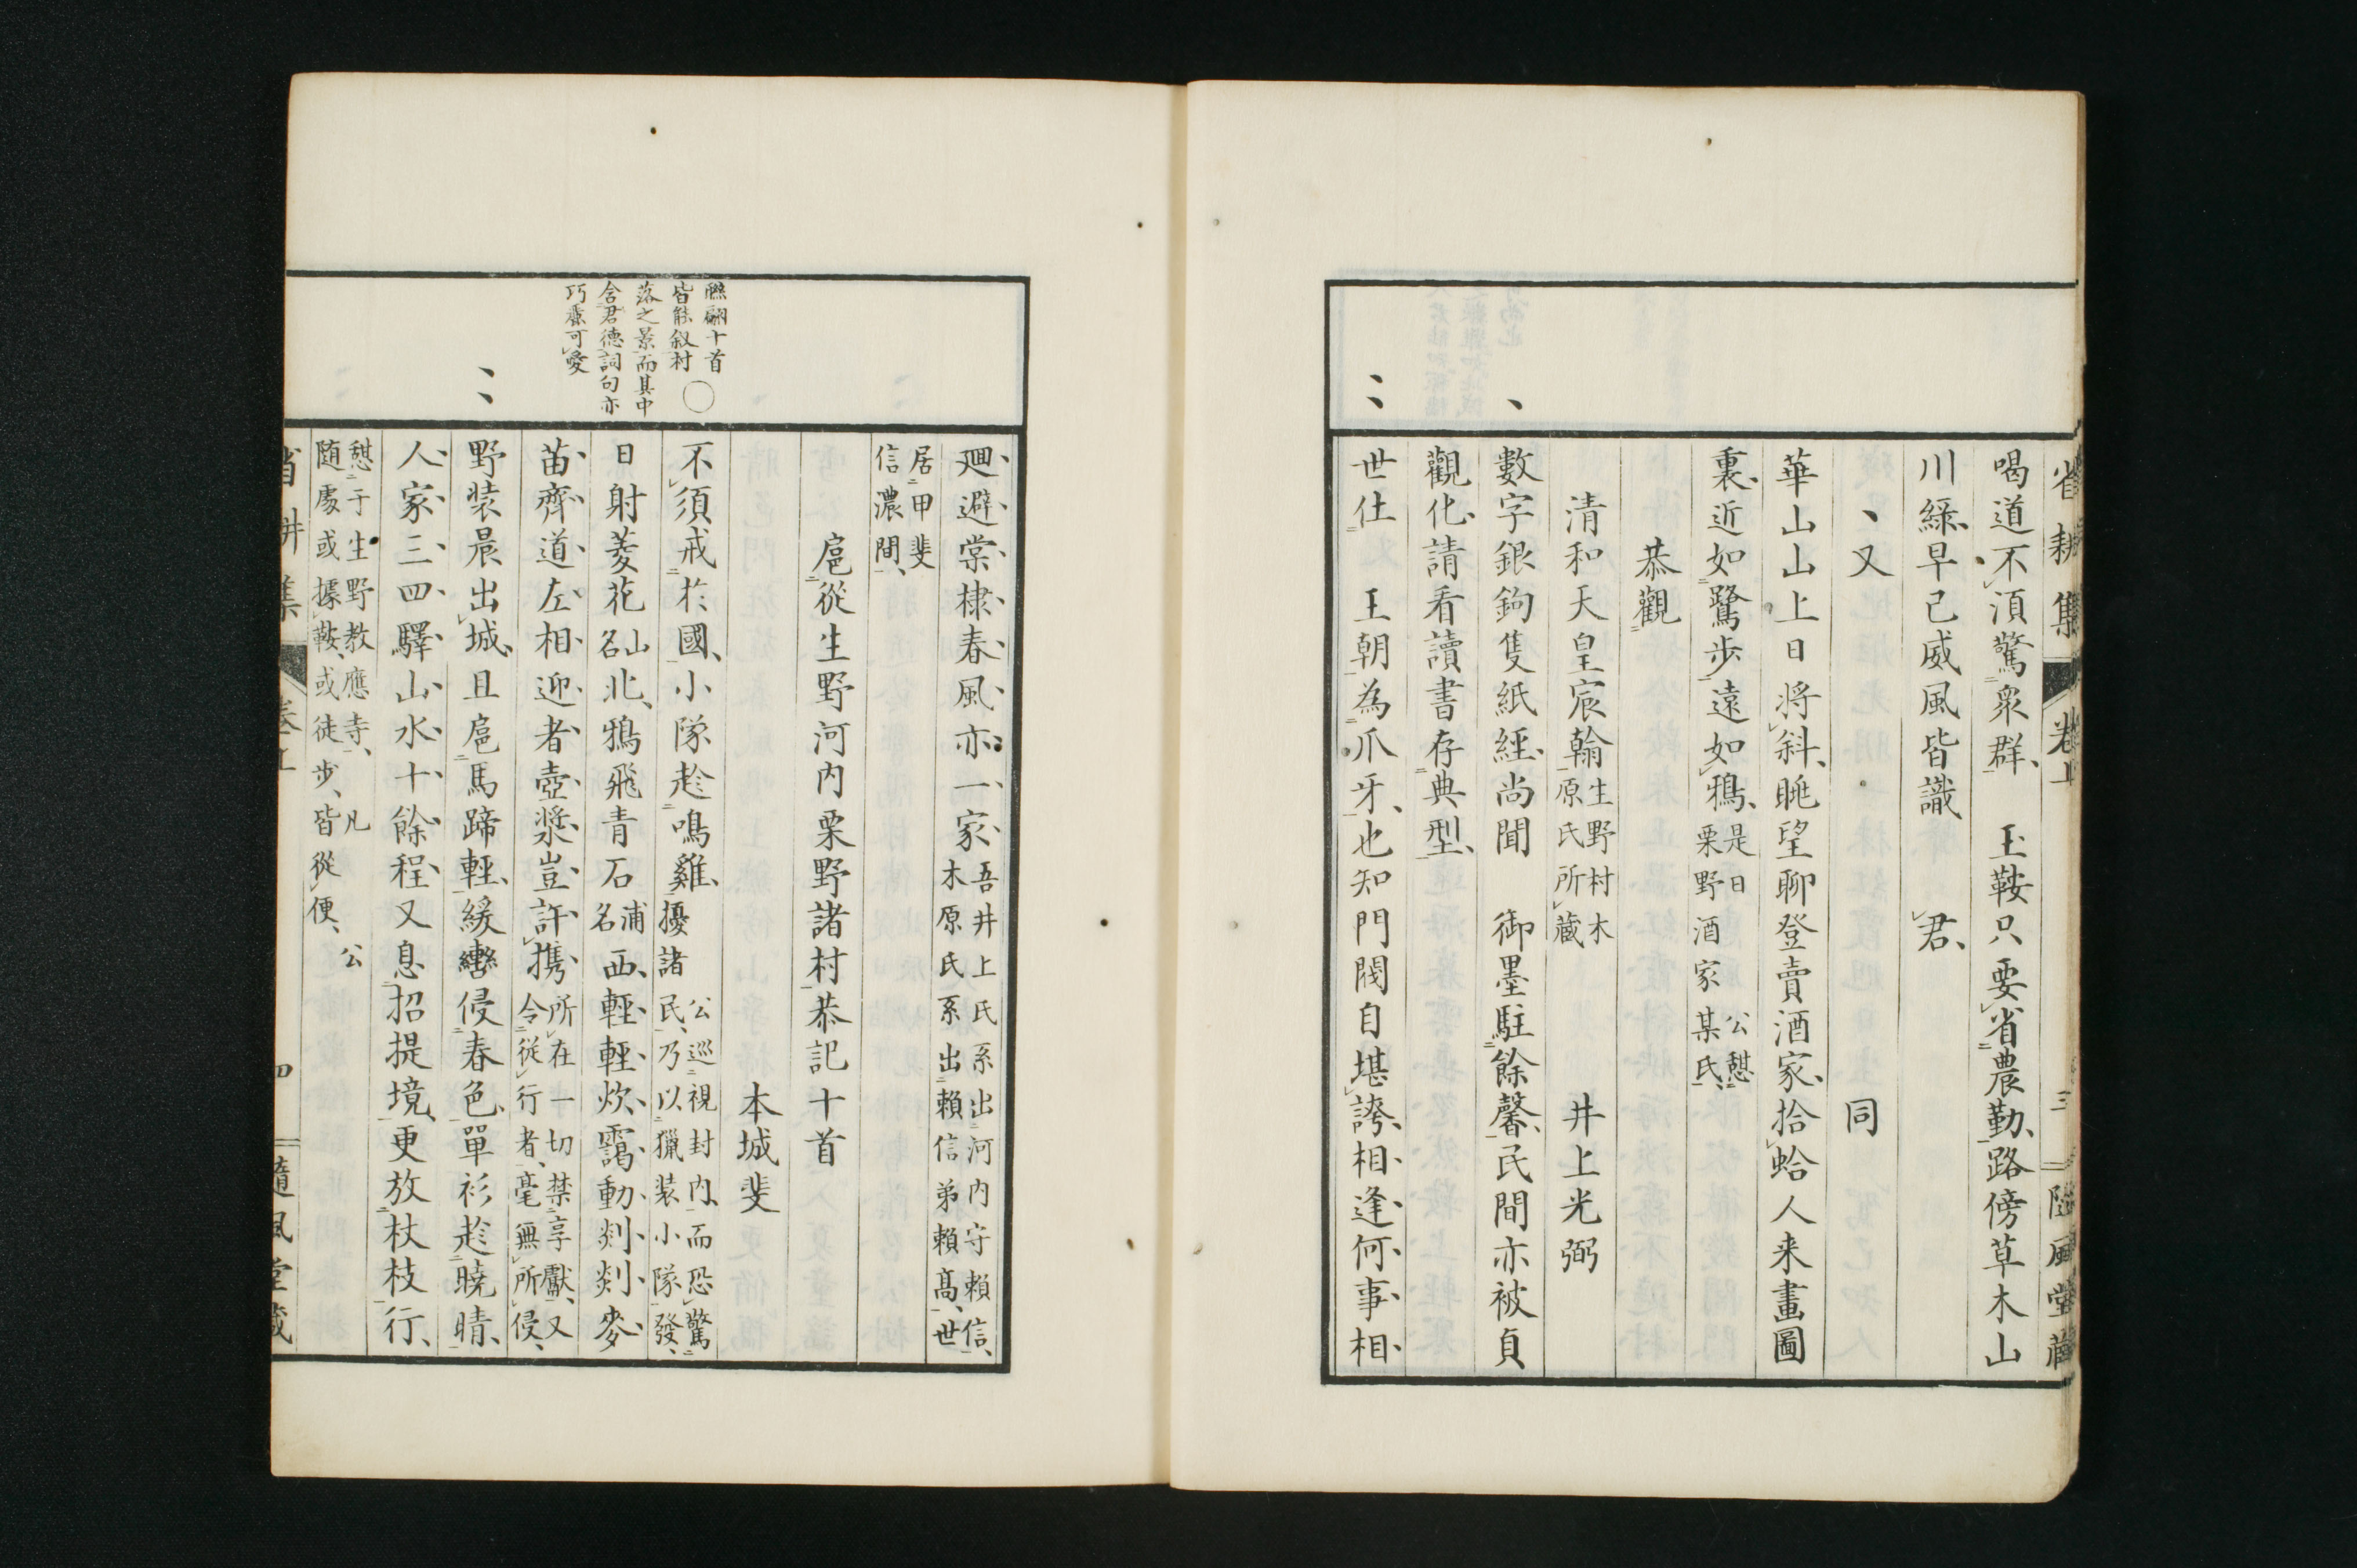 省耕集 卷上 三 隨風堂藏
喝道不湏驚衆群、 玉鞍只要省農勤、路傍草木山
川緑、早已威風皆識 君、
、又 同
華山山上日将斜、眺望聊登賣酒家、拾蛤人来畫圖
裏、近如鷺步遠如鴉、是日 公憇栗野酒家某氏、
恭觀
清和天皇宸翰生野村木原氏所藏 井上光弼
數字銀鉤隻紙經、尚聞 御墨駐餘馨、民間亦被貞
觀化、請看讀書存典型、
世仕 王朝為爪牙、也知門閥自堪誇、相逢何事相
廻避、棠棣春風亦一家、吾井上氏系出河内守賴信、木原氏系出賴信弟賴髙、世
居甲斐信濃間、
扈從生野河内栗野諸村恭記十首
本城斐
不須戒於國、小隊趁鳴雞、公巡視封内、而恐驚擾諸民、乃以獵装小隊發、
日射菱花山名北、鴉飛青石浦名西、輕輕炊靄動、剡剡麥
苗齊、道左相迎者、壺漿豈許携、所在一切禁享獻、又令從行者、毫無所侵、
野装晨出城、且扈馬蹄輕、緩轡侵春色、單衫趁曉晴、
人家三四驛、山水十餘程、又息招提境、更放杖枝行、
公憇于生野教應寺、凡隨處或據鞍、或徒步、皆從便、
聮翩十首
皆能叙村
落之景而其中
含君德詞句亦
巧麗可愛
省耕集 卷上 四 隨風堂藏